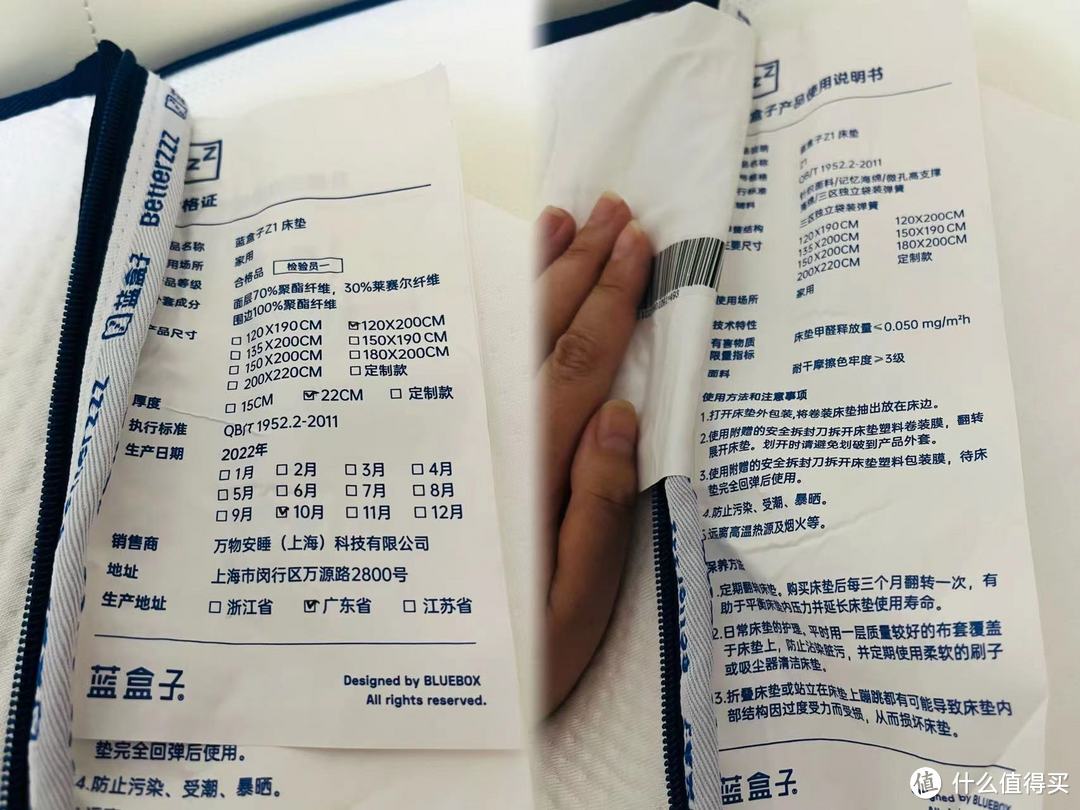 Betterzzz
蓝盒子
ZZ
格证
品名称 蓝盒子Z1 床垫
用场所 家用
品等级 合格品 检验员一
套成分 面层70%聚酯纤维，30%莱赛尔纤维
围边100%聚酯纤维
产品尺寸 □ 120X190CM ☑ 120X200CM
□ 135X200CM □ 150X190CM
□ 150X200CM □ 180X200CM
□ 200X220CM □ 定制款
厚度 □ 15CM ☑ 22CM □ 定制款
执行标准 QB/T 1952.2-2011
生产日期 2022年
□ 1月 □ 2月 □ 3月 □ 4月
□ 5月 □ 6月 □ 7月 □ 8月
□ 9月 ☑ 10月 □ 11月 □ 12月
销售商 万物安睡（上海）科技有限公司
地址 上海市闵行区万源路2800号
生产地址 □ 浙江省 ☑ 广东省 □ 江苏省
蓝盒子 Designed by BLUEBOX
All rights reserved.
垫完全回弹后使用。
4.防止污染、受潮、暴晒。
盒子产品使用说明书
蓝盒子Z1 床垫
Z1
QB/T 1952.2-2011
针织面料/记忆海绵/微孔高支撑
海绵/三区独立袋装弹簧
三区独立袋装弹簧
120X190CM 120X200CM
135X200CM 150X190CM
150X200CM 180X200CM
200X220CM 定制款
使用场所 家用
技术特性
有害物质 床垫甲醛释放量≤0.050 mg/m²h
限量指标
面料 耐干摩擦色牢度≥3级
使用方法和注意事项
1.打开床垫外包装,将卷装床垫抽出放在床边。
2.使用附赠的安全拆封刀拆开床垫塑料卷装膜，翻转
展开床垫。划开时请避免划破到产品外套。
3.使用附赠的安全拆封刀拆开床垫塑料包装膜，待床
垫完全回弹后使用。
4.防止污染、受潮、暴晒。
5.远离高温热源及烟火等。
保养方法
1.定期翻转床垫。购买床垫后每三个月翻转一次，有
助于平衡床垫内压力并延长床垫使用寿命。
2.日常床垫的护理。平时用一层质量较好的布套覆盖
于床垫上，防止沾染脏污，并定期使用柔软的刷子
或吸尘器清洁床垫。
3.折叠床垫或站立在床垫上蹦跳都有可能导致床垫内
部结构因过度受力而受损，从而损坏床垫。
蓝盒子 Designed by BLUEBOX
值 什么值得买